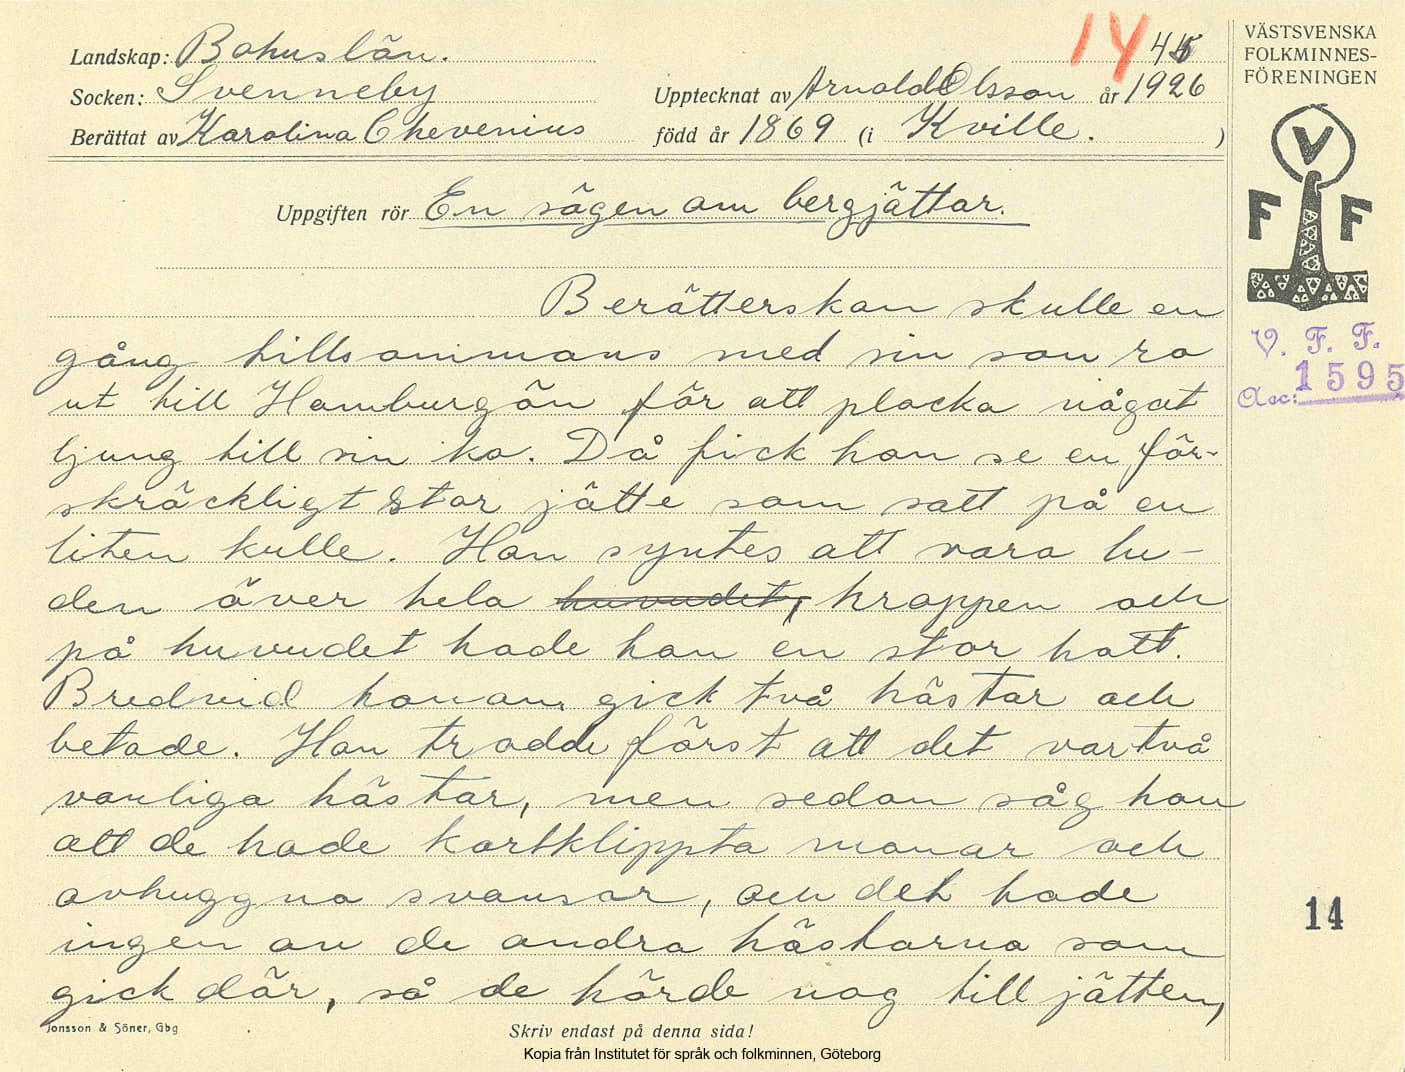 Landskap: Bohuslän.
Socken: Svenneby
Berättat av Karolina Chevenius
14
Upptecknat av Arnold Olsson år 1926
född år 1869 (i Kville. )
VÄSTSVENSKA
FOLKMINNES-
FÖRENINGEN
V
F F
V. F. F.
Acc: 1595
Uppgiften rör En sägen om bergjättar.
Berätterskan skulle en
gång tillsammans med sin son ro
ut till Hamburgön för att plocka något
ljung till sin ko. Då fick hon se en för-
skräckligt stor jätte som satt på en
liten kulle. Han syntes att vara lu-
den över hela huvudet, kroppen och
på huvudet hade han en stor hatt.
Bredvid honom gick två hästar och
betade. Hon trodde först att det var två
vanliga hästar, men sedan såg hon
att de hade kortklippta manar och
avhuggna svansar, och det hade
ingen av de andra hästarna som
gick där, så de hörde nog till jätten,
14
Jonsson & Söner, Gbg
Skriv endast på denna sida!
Kopia från Institutet för språk och folkminnen, Göteborg